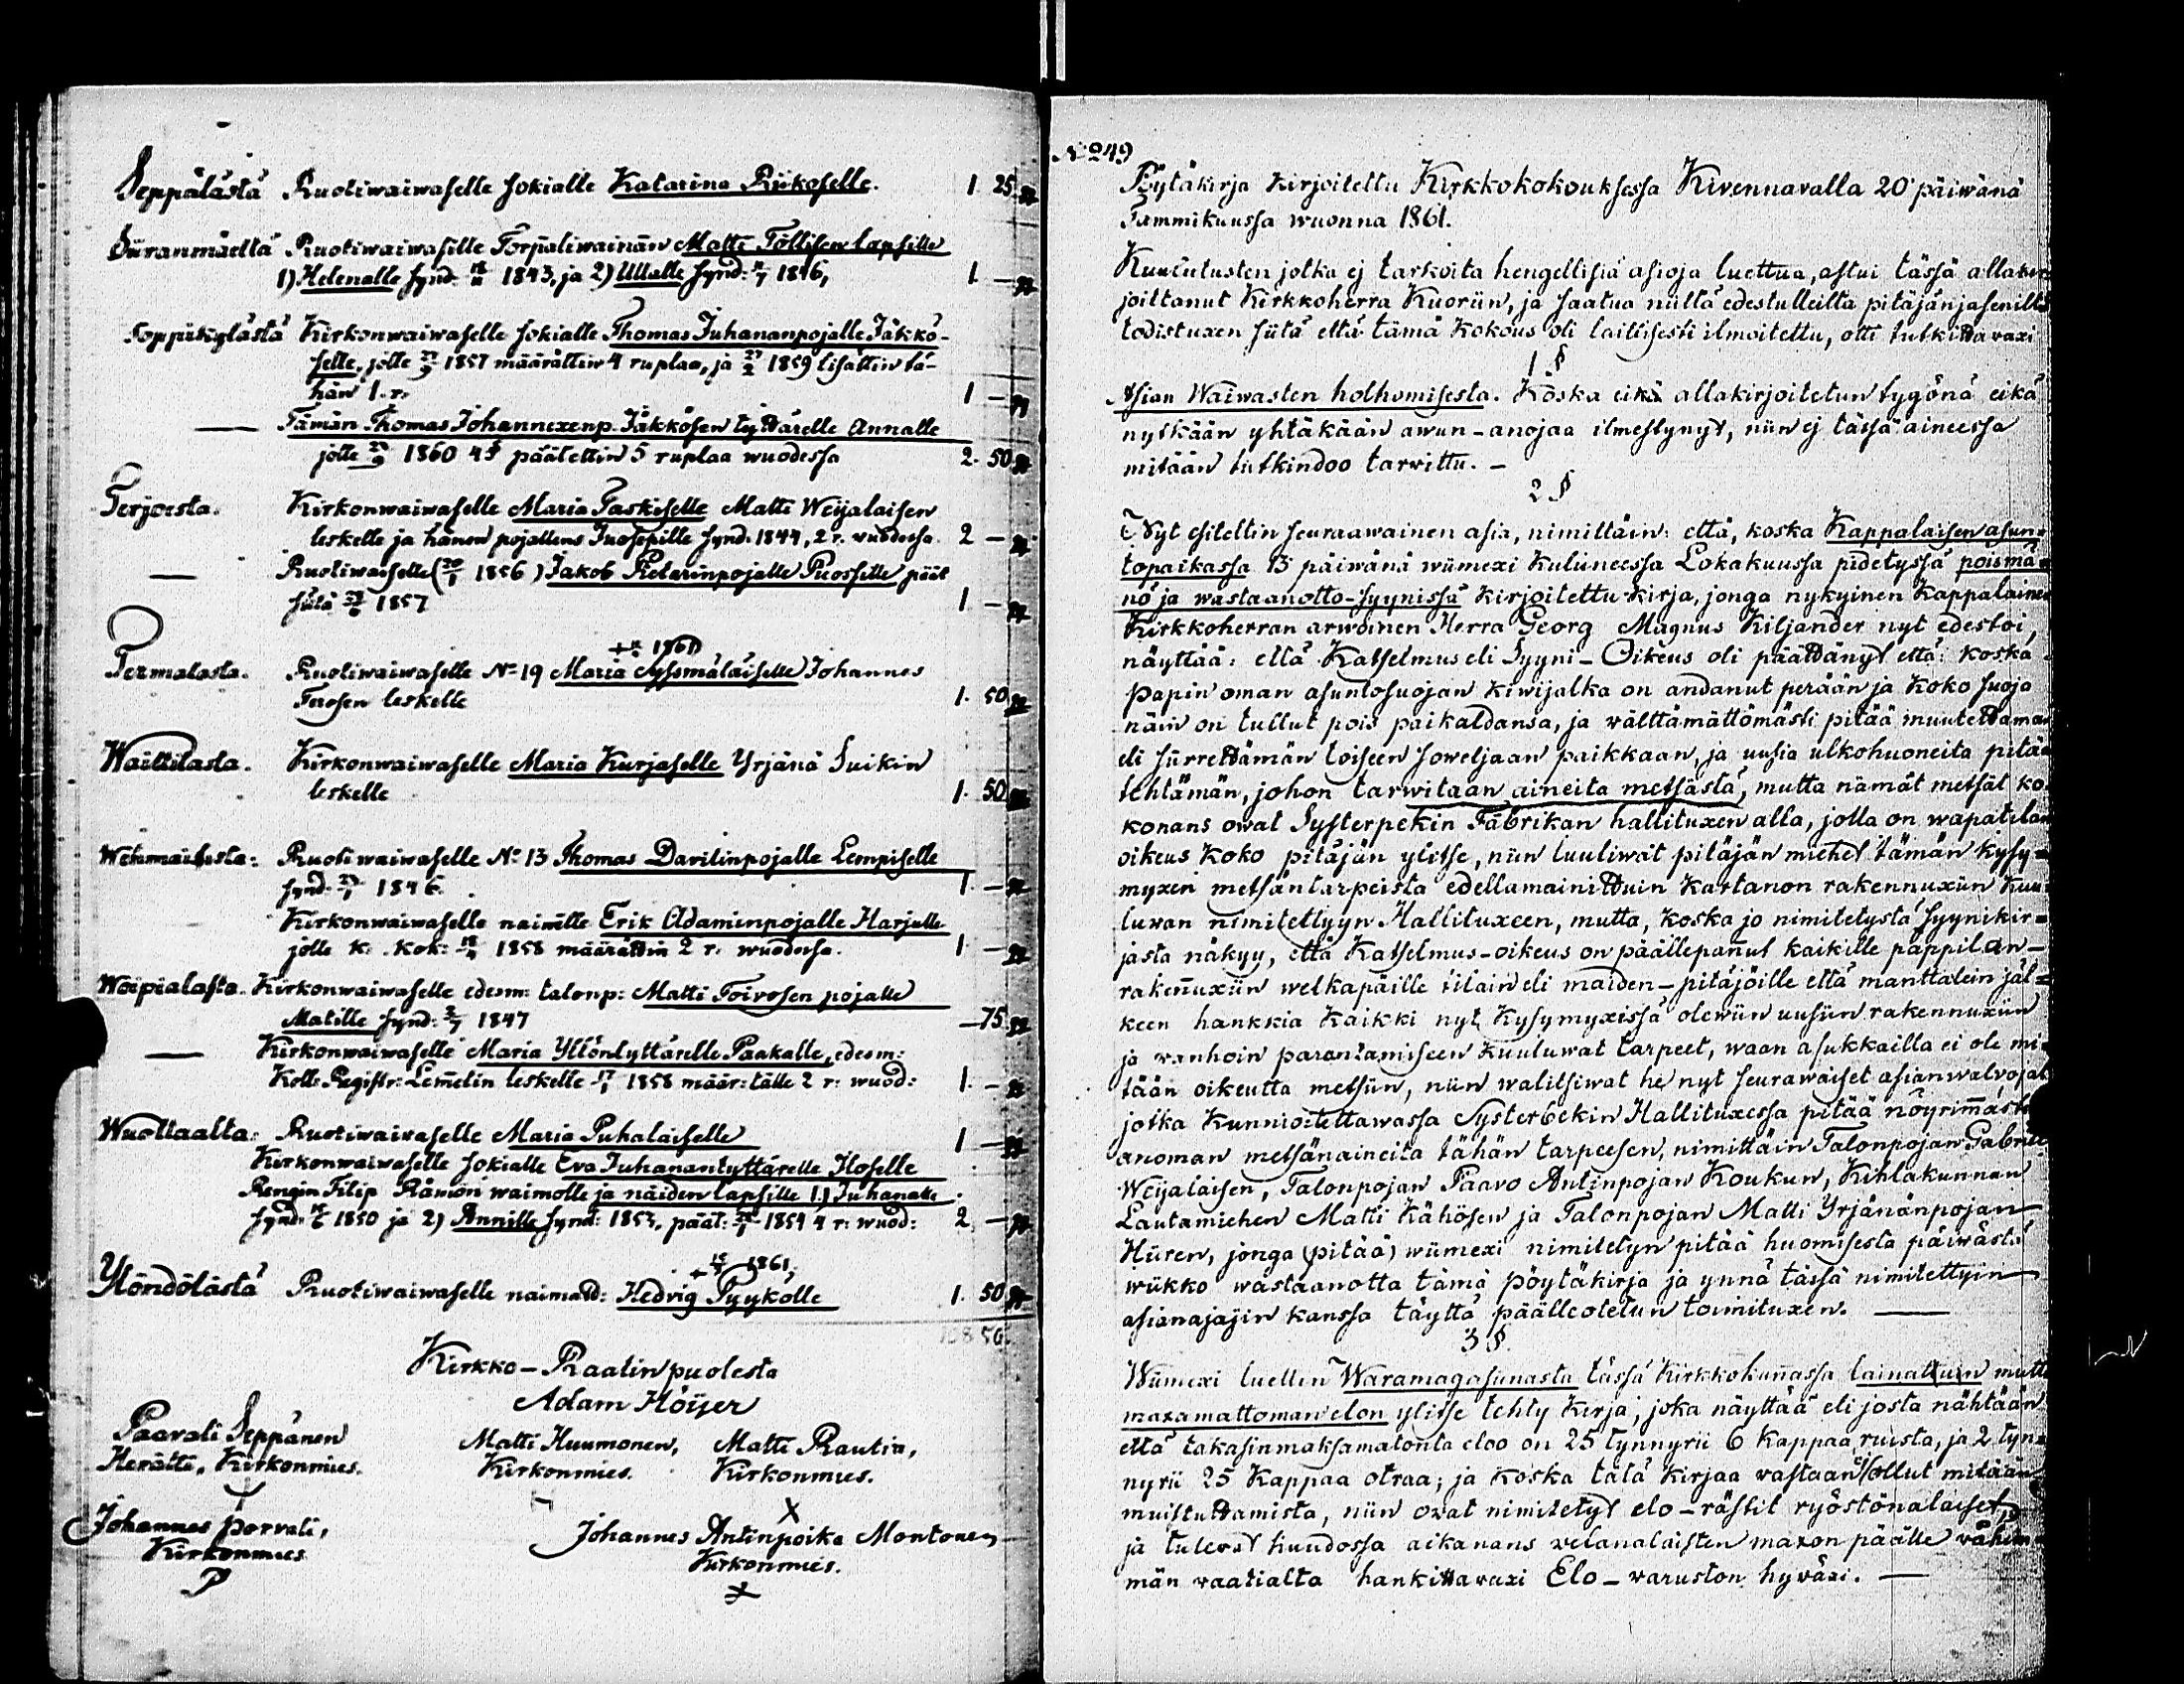 Seppälästä Ruotiwaiwaselle sokialle Katarina Riikoselle. 1. 25.
Siiranmäeltä Ruotiwaiwasille Torpaliwainän Matti Töllisen lapsille
1) Helenalle synd. 18/11 1843, ja 2) Ullalle synd: 1846, 1 —
Toppükylästä Kirkonwaiwaselle sokialle Thomas Juhananpojalle Jäkkö-
selle, jolle 1857 määrättiin 4 ruplaa, ja 27/2 1859 lisättiin tä-
hän 1. r. 1 —
— Tämän Thomas Johannexenp. Jäkkösen tyttärelle Annalle
jolle 1860 4 § päätettiin 5 ruplaa wuodessa 2. 50
Terjoesta. Kirkonwaiwaselle Maria Taskiselle Matti Weijalaisen
leskelle ja hänen pojallens Juosepille synd. 1844, 2 r. wuodessa. 2 —
— Ruotiwaiselle (20/1 1856) Jakob Petarinpojalle Puossille päät
siitä 1857 1 —
+ 1861
Termalasta. Ruotiwaiwaselle No 19 Maria Sysmäläiselle Johannes
Terosen leskelle 1. 50
Waittilasta. Kirkonwaiwaselle Maria Kurjaselle Yrjänä Suikin
leskelle 1. 50
Wehmaisista: Ruotiwaiwaselle No 13 Thomas Davitinpojalle Lempiselle
synd. 1846. 1. —
Kirkonwaiwaselle naiwille Erik Adaminpojalle Harjulle
jolle K. Kok: 1858 määrättiin 2 r. wuodessa. 1 —
Woipialasta. Kirkonwaiwaselle edesm: talonp: Matti Toivosen pojalle
Matille synd: 3/7 1847 — 75
— Kirkonwaiwaselle Maria Yllöntyttärelle Paakalle, edesm:
Koll: Registr: Lemelin leskelle 17/1 1858 määr: tälle 2 r: wuod: 1. —
Wuottaalta: Ruotiwaiwaselle Maria Puhalaiselle 1 —
Kirkonwaiwaselle sokialle Eva Juhanantyttärelle Iloselle
Rengin Filip Rämön waimolle ja näiden lapsille 1.) Juhanalle
synd. 1850 ja 2) Annille synd: 1853, päät: 1854 4 r: wuod: 2 —
+ 1861,
Ylöndölästä Ruotiwaiwaselle naimatt: Hedvig Pyykölle 1. 50
Kirkko-Raatin puolesta
Adam Höijer
Paavali Seppänen Matti Huumonen, Matti Rautia,
Herätti, Kirkonmies. Kirkonmies. Kirkonmies.
Johannes Porvali, Johannes Antinpoika Montonen
Kirkonmies Kirkonmies.
No 249
Pöytäkirja kirjoitettu Kirkkokokouksessa Kivennavalla 20 päiwänä
Tammikuussa wuonna 1861.
Kuulutusten jotka ej tarkoita hengellisiä asioja luettua, astui tässä allakir-
joittanut Kirkkoherra Kuoriin, ja saatua niiltä edestulleilta pitäjänjäseniltä
todistuxen siitä että tämä Kokous oli laillisesti ilmoitettu, otti tutkittavaxi
1 §
Asian Waiwasten holhomisesta. Koska eikä allakirjoitetun tygönä eikä
nytkään yhtäkään awun-anojaa ilmestynyt, niin ej tässä aineessa
mitään tutkindoo tarvittu. —
2 §
Nyt esitettin seuraawainen asia, nimittäin: että, koska Kappalaisen asun-
topaikassa 13 päiwänä wiimexi kuluneessa Lokakuussa pidetyssä poismä-
nö ja wastaanotto-syynissä kirjoitettu kirja, jonga nykyinen Kappalainen
Kirkkoherran arwoinen Herra Georg Magnus Kiljander nyt edestoi,
näyttää: että Katselmus eli Syyni-Oikeus oli päättänyt että: koska
papin oman asuntosuojan kiwijalka on andanut perään ja koko suoja
näin on tullut pois paikaldansa, ja wälttämättömästi pitää muutettaman
eli siirrettämän toiseen soweljaan paikkaan, ja uusia ulkohuoneita pitää
tehtämän, johon tarwitaan aineita metsästä, mutta nämät metsät ko-
konans owat Systerpekin Fabrikan hallituxen alla, jolla on wapatilan
oikeus koko pitäjän ylitse, niin luuliwat pitäjän miehet tämän kysy-
myxen metsäntarpeista edellamainittuin kartanon rakennuxiin kuu-
luwan nimitettyyn Hallituxeen, mutta, koska jo nimitetystä syynikir-
jasta näkyy, että Katselmus-oikeus on päällepannut kaikille pappilan-
rakennuxiin welkapäille tilain eli maiden-pitäjöille että manttalein jäl-
keen hankkia kaikki nyt kysymyxissä olewiin uusiin rakennuxiin
ja wanhoin parantamiseen kuuluwat tarpeet, waan asukkailla ei ole mi-
tään oikeutta metsiin, niin walitsiwat he nyt seurawaiset asianwalvojat
jotka kunnioitettawassa Systerbekin Hallituxessa pitää nöyrimmästi
anoman metsänaineita tähän tarpeesen, nimittäin Talonpojan Gabriel
Weijalaisen, Talonpojan Paavo Antinpojan Koukun, Kihlakunnan
Lautamiehen Matti Kähösen ja Talonpojan Matti Yrjänänpojan
Hiiren, jonga (pitää) wiimexi nimitetyn pitää huomisesta päiwästä
wiikko wastaanotta tämä pöytäkirja ja ynnä tässä nimitettyin
asianajajin kanssa täyttä päälleotetun toimituxen. —
3 §.
Wiimexi luettin Waramagasiinasta tässä Kirkkokunnassa lainattuin mutt
maxamattoman elon ylitse tehty kirja, joka näyttää eli josta nähtään
että takasinmaksamatonta eloo on 25 tynnyrii 6 kappaa ruista, ja 2 tyn-
nyrii 25 kappaa otraa; ja koska tätä kirjaa vastaan ei ollut mitään
muistuttamista, niin ovat nimitetyt elo-rästit ryöstönalaiset,
ja tulevat kuudossa aikanans velanalaisten maxon päälle vähem-
män vaatialta hankittavaxi Elo-varuston hyväxi. —